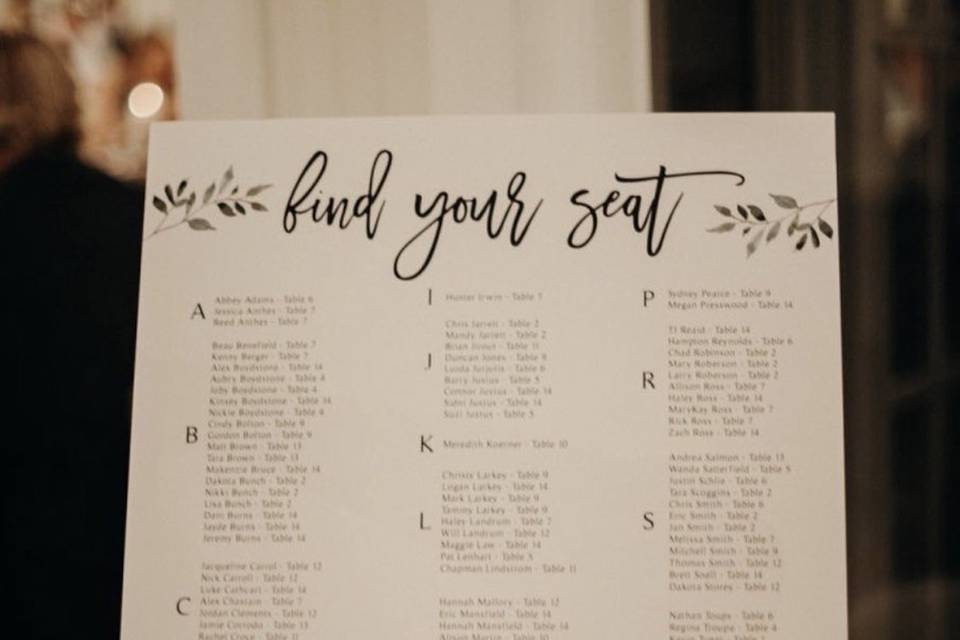 find your seat
A
Abbey Adams - Table 6
Jessica Anthes - Table 7
Reed Anthes - Table 7
B
Beau Benefield - Table 7
Kenny Berger - Table 7
Alex Boydstone - Table 14
Aubry Boydstone - Table 4
Joby Boydstone - Table 4
Kinsey Boydstone - Table 14
Nickie Boydstone - Table 4
Cindy Bolton - Table 9
Gordon Bolton - Table 9
Matt Brown - Table 13
Tara Brown - Table 13
Makenzie Bruce - Table 14
Dakota Bunch - Table 2
Nikki Bunch - Table 2
Lisa Bunch - Table 2
Dani Burns - Table 14
Jayde Burns - Table 14
Jeremy Burns - Table 14
C
Jacqueline Carrol - Table 12
Nick Carroll - Table 12
Luke Cathcart - Table 14
Alex Chastain - Table 7
Jordan Clements - Table 12
Jamie Corrodo - Table 13
Rachel Croce - Table 11
I
Hunter Irwin - Table 7
J
Chris Jarrett - Table 2
Mandy Jarrett - Table 2
Brian - Table 11
Duncan Jones - Table 8
Table 6
Barry Justus - Table 5
Connor Justus - Table 14
Justus - Table 14
Suzi Justus - Table 5
K
Meredith Koerner - Table 10
L
Christy Larkey - Table 9
Logan Larkey - Table 14
Mark Larkey - Table 9
Tammy Larkey - Table 9
Haley Landrum - Table 7
Will Landrum - Table 12
Maggie Law - Table 14
Pat Lenhart - Table 5
Chapman Lindstrom - Table 11
Hannah Mallory - Table 12
Eric Mansfield - Table 14
Hannah Mansfield - Table 14
Alison Martin - Table 10
P
Sydney Pearce - Table 9
Megan Presswood - Table 14
R
TJ Reaid - Table 14
Hampton Reynolds - Table 6
Chad Robinson - Table 2
Mary Roberson - Table 2
Larry Roberson - Table 2
Allison Ross - Table 7
Haley Ross - Table 14
MaryKay Ross - Table 7
Rick Ross - Table 7
Zach Ross - Table 14
S
Andrea Salmon - Table 13
Wanda Satterfield - Table 5
Justin Schlie - Table 6
Tara Scoggins - Table 2
Chris Smith - Table 6
Eric Smith - Table 2
Jan Smith - Table 2
Melissa Smith - Table 7
Mitchell Smith - Table 9
Thomas Smith - Table 12
Brett Snell - Table 14
Dakota Storey - Table 12
Nathan Toups - Table 6
Regina Troupe - Table 4